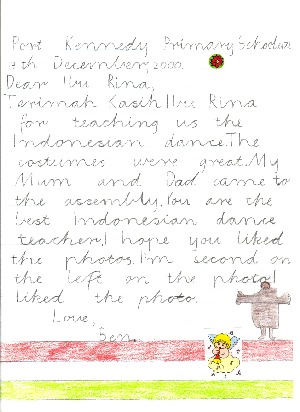 Port Kennedy Primary School
7th December, 2000.
Dear Ibu Rina,
Terimah Kasih Ibu Rina
for teaching us the
Indonesian dance. The
costumes were great. My
Mum and Dad came to
the assembly. You are the
best Indonesian dance
teacher. I hope you liked
the photos. I'm second on
the left on the photo. I
liked the photo.
Love,
Ben.